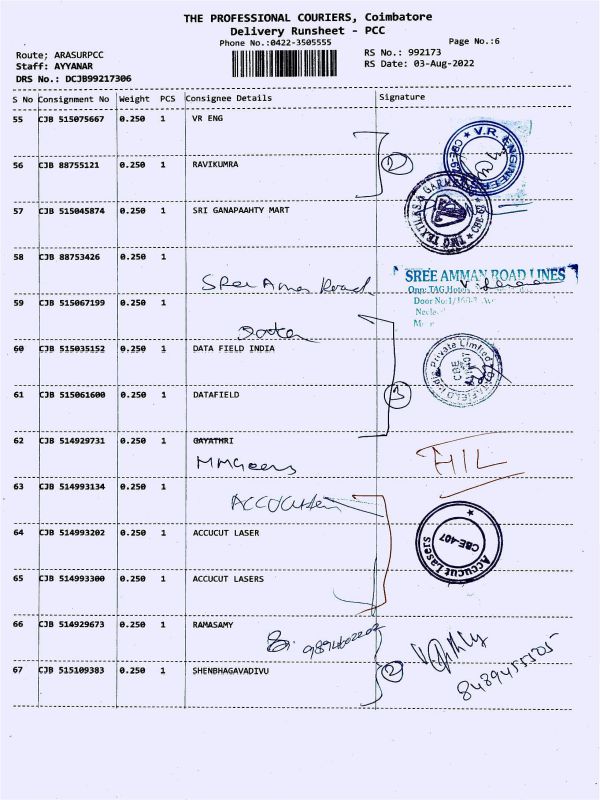 THE PROFESSIONAL COURIERS, Coimbatore
Delivery Runsheet - PCC
Phone No.:0422-3505555
Page No.:6
Route; ARASURPCC
RS No.: 992173
Staff: AYYANAR
RS Date: 03-Aug-2022
DRS No.: DCJB99217306
S No Consignment No Weight PCS Consignee Details Signature
55 CJB 515075667 0.250 1 VR ENG
V.R. ENGINEER
56 CJB 88755121 0.250 1 RAVIKUMRA
2
57 CJB 515045874 0.250 1 SRI GANAPAAHTY MART
TEXTILES & GARMENTS
58 CJB 88753426 0.250 1
Sree Aman Road
SREE AMMAN ROAD LINES
Opp: TAG
Door No:1/
59 CJB 515067199 0.250 1
60 CJB 515035152 0.250 1 DATA FIELD INDIA
India Private Limited
CBE
61 CJB 515061600 0.250 1 DATAFIELD
3
62 CJB 514929731 0.250 1 GAYATHRI
HIL
63 CJB 514993134 0.250 1
64 CJB 514993202 0.250 1 ACCUCUT LASER
Accucut Lasers
CBE-407
65 CJB 514993300 0.250 1 ACCUCUT LASERS
66 CJB 514929673 0.250 1 RAMASAMY
9894602202
67 CJB 515109383 0.250 1 SHENBHAGAVADIVU
2